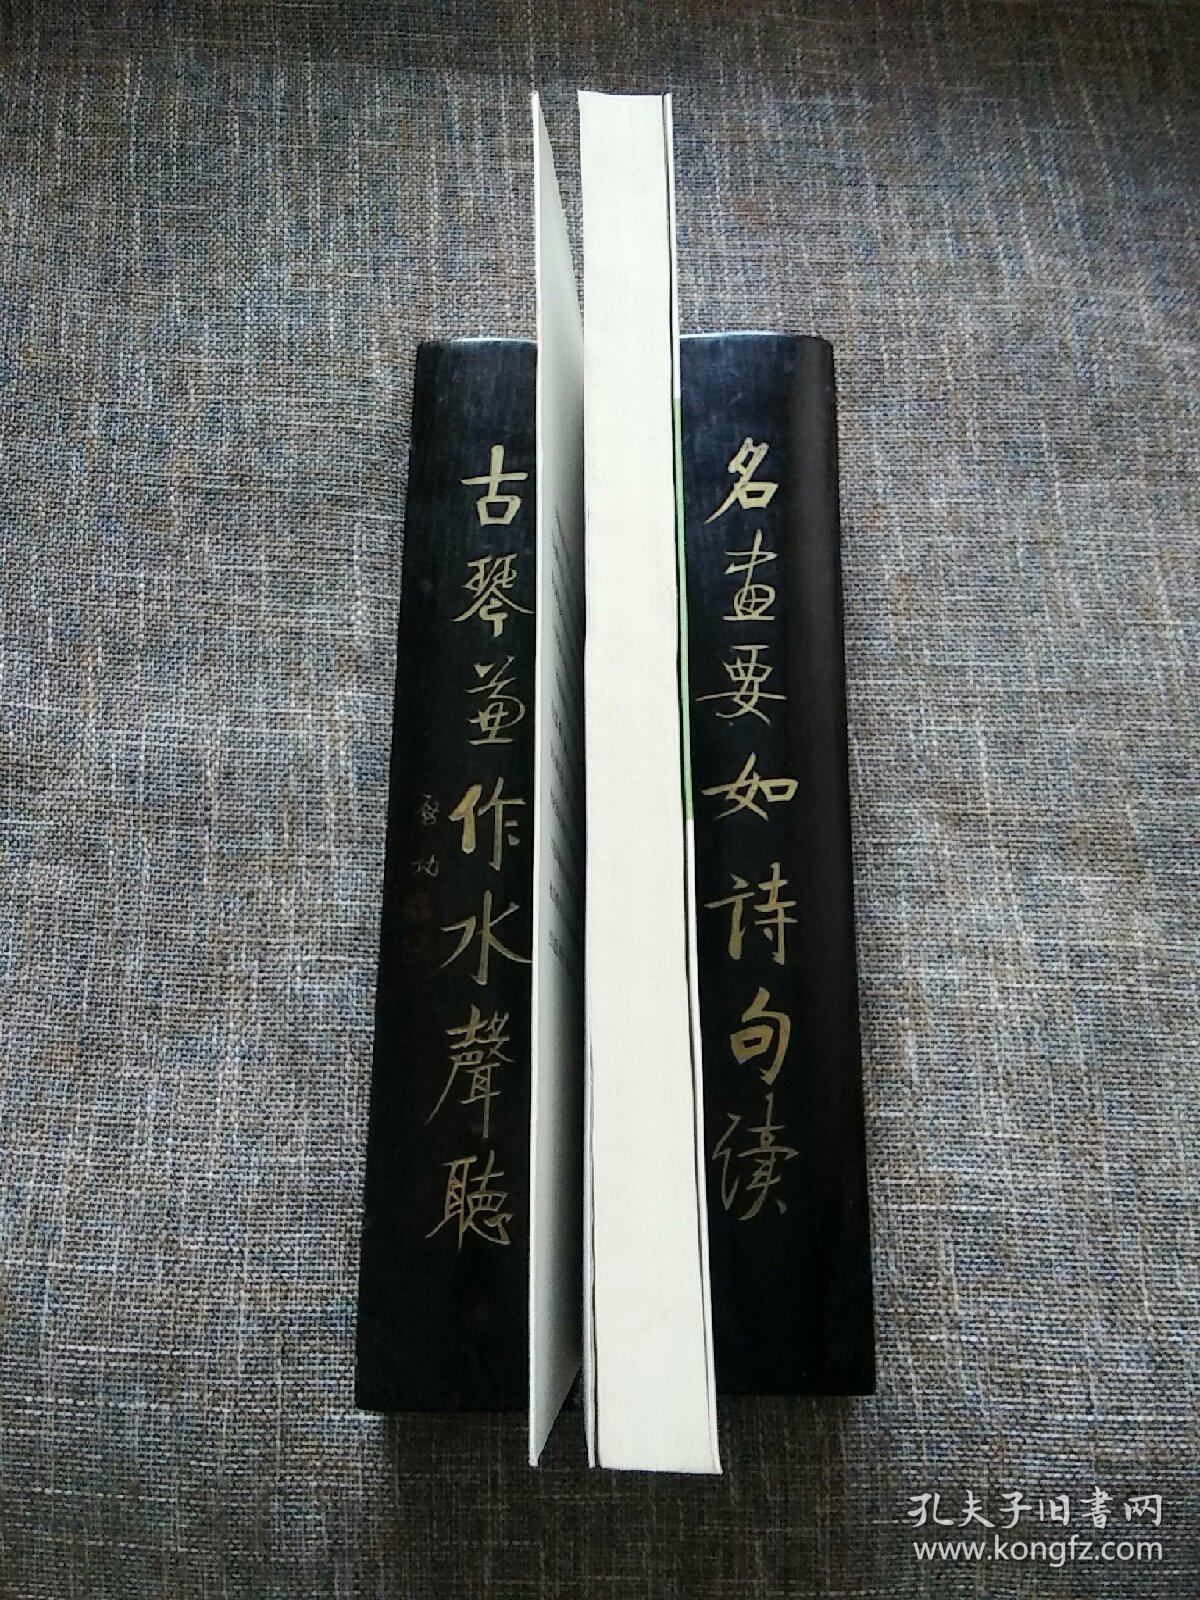 名画要如诗句读
古琴兼作水聲聽
啓功
孔夫子旧書网
www.kongfz.com